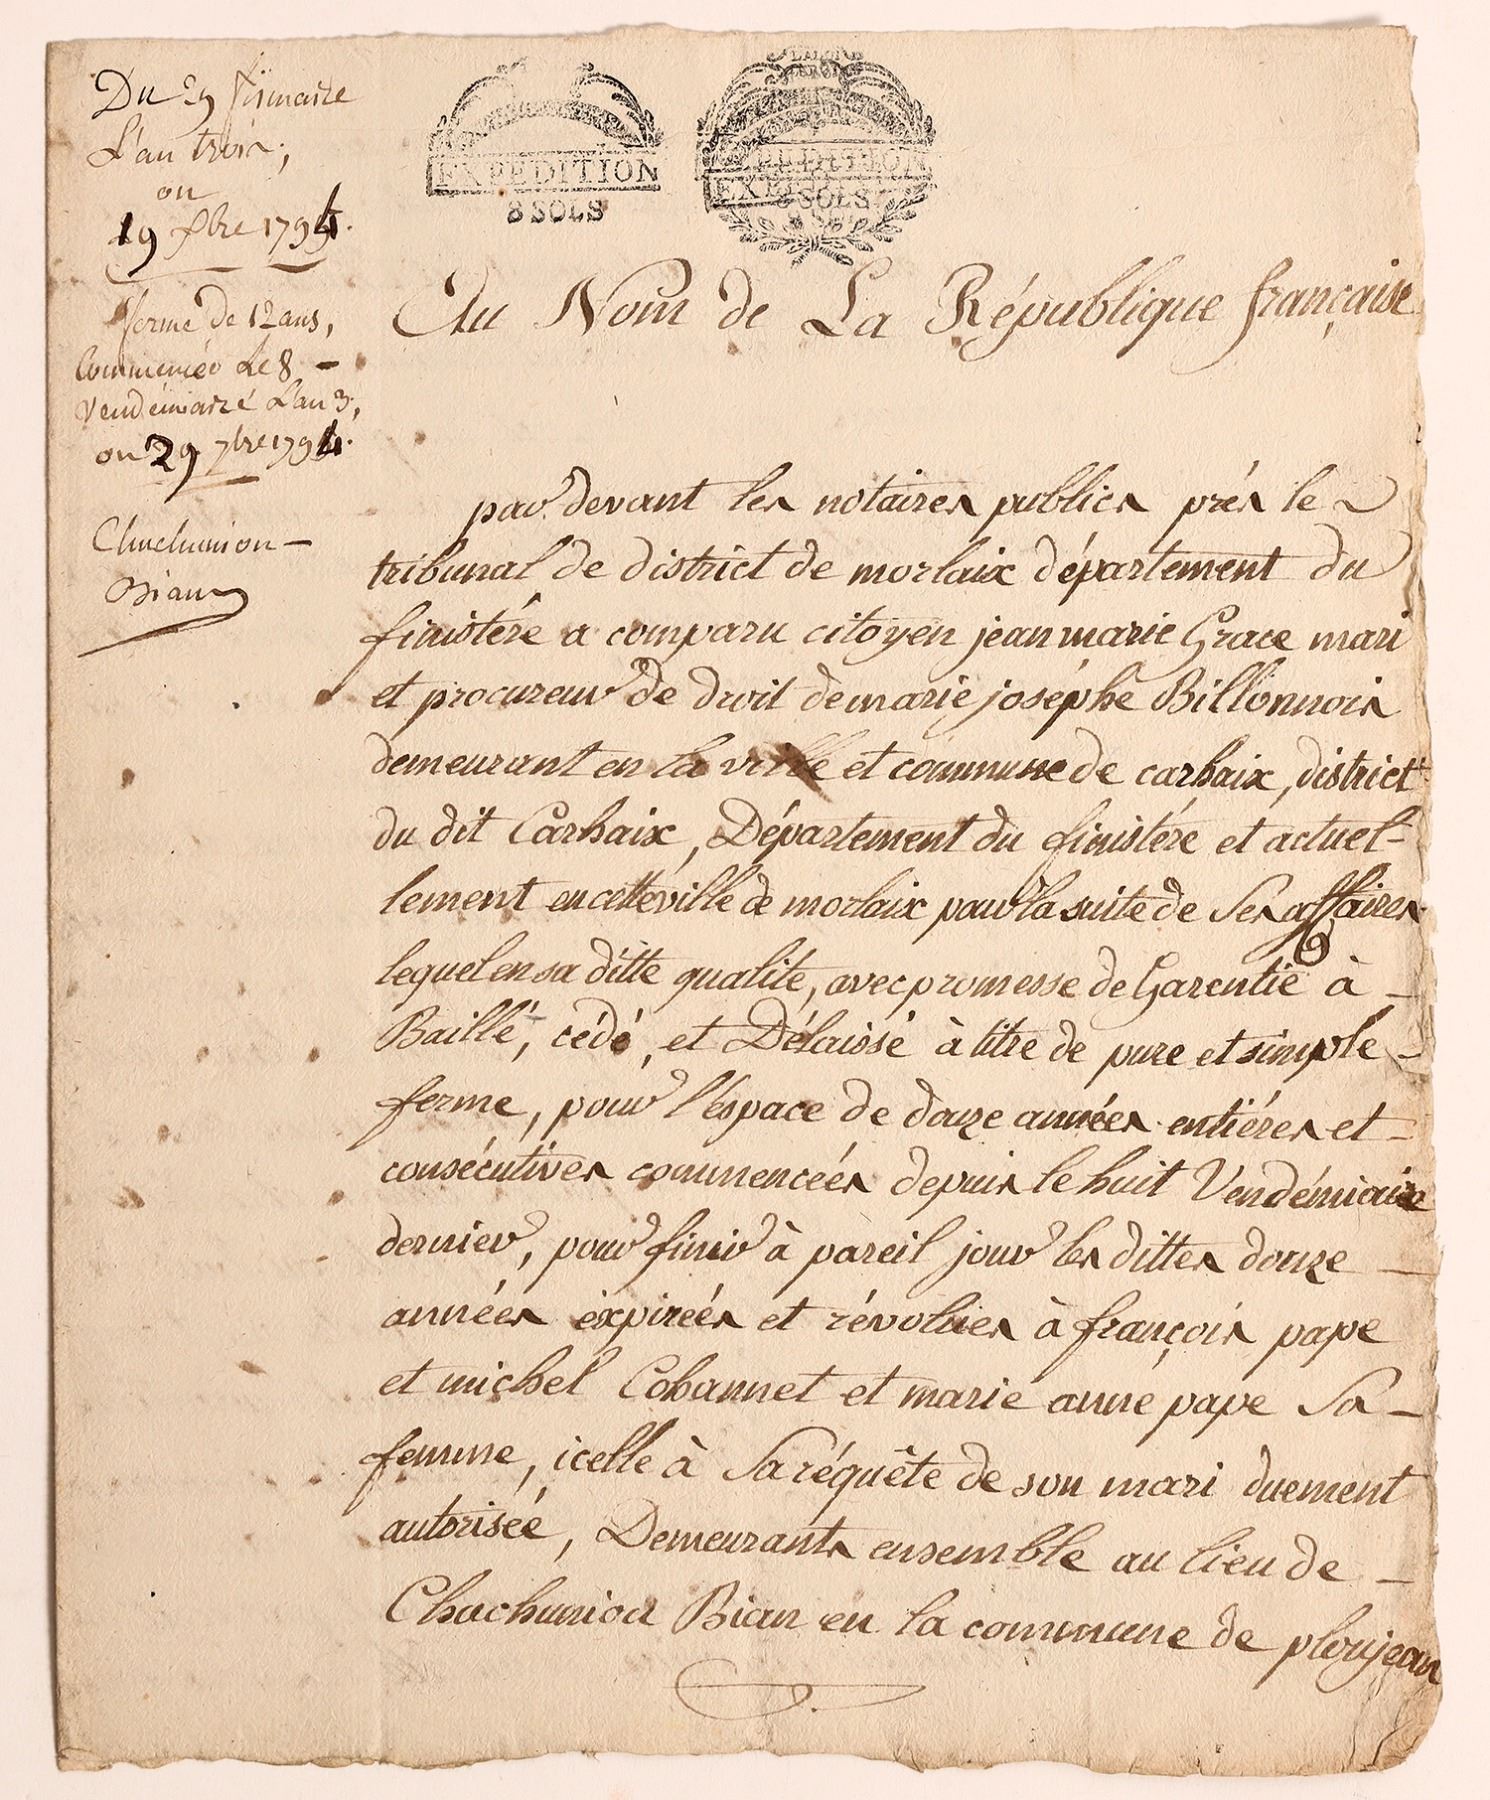 Du 29 frimaire
L'an trois;
ou
19 xbre 1794.
ferme de 12 ans,
Commencéé Le 8 –
Vendémiaire L'an 3,
ou 29 7bre 1794.
Chuchunion –
Bian
EXPEDITION
8 SOLS
EXPEDITION
8 SOLS
Au Nom de La République française
par devant les notaires publics prés le
tribunal de district de morlaix département du
finistére a comparu citoyen jean marie Grace mari
et procureur de droit de marie joséphe Billonnois
demeurant en la ville et commune de carhaix, district
du dit Carhaix, Département du finistére et actuel-
lement en cette ville de morlaix pour la suite de Ses affaires
lequel en sa ditte qualite, avec promesse de Garentie à –
Baillé, cédé, et Délaissé à titre de pure et simple –
ferme, pour l'éspace de douze années entiéres et –
consécutives commencées depuis le huit Vendémiaire
dernier, pour finir à pareil jour les dittes douze –
années éxpirées et révolues à françois pape
et michel Cobannet et marie anne pape Sa –
femme, icelle à Sa réquête de son mari duement
autorisée, Demeurants ensemble au lieu de –
Chuchuniou Bian en la commune de ploujean